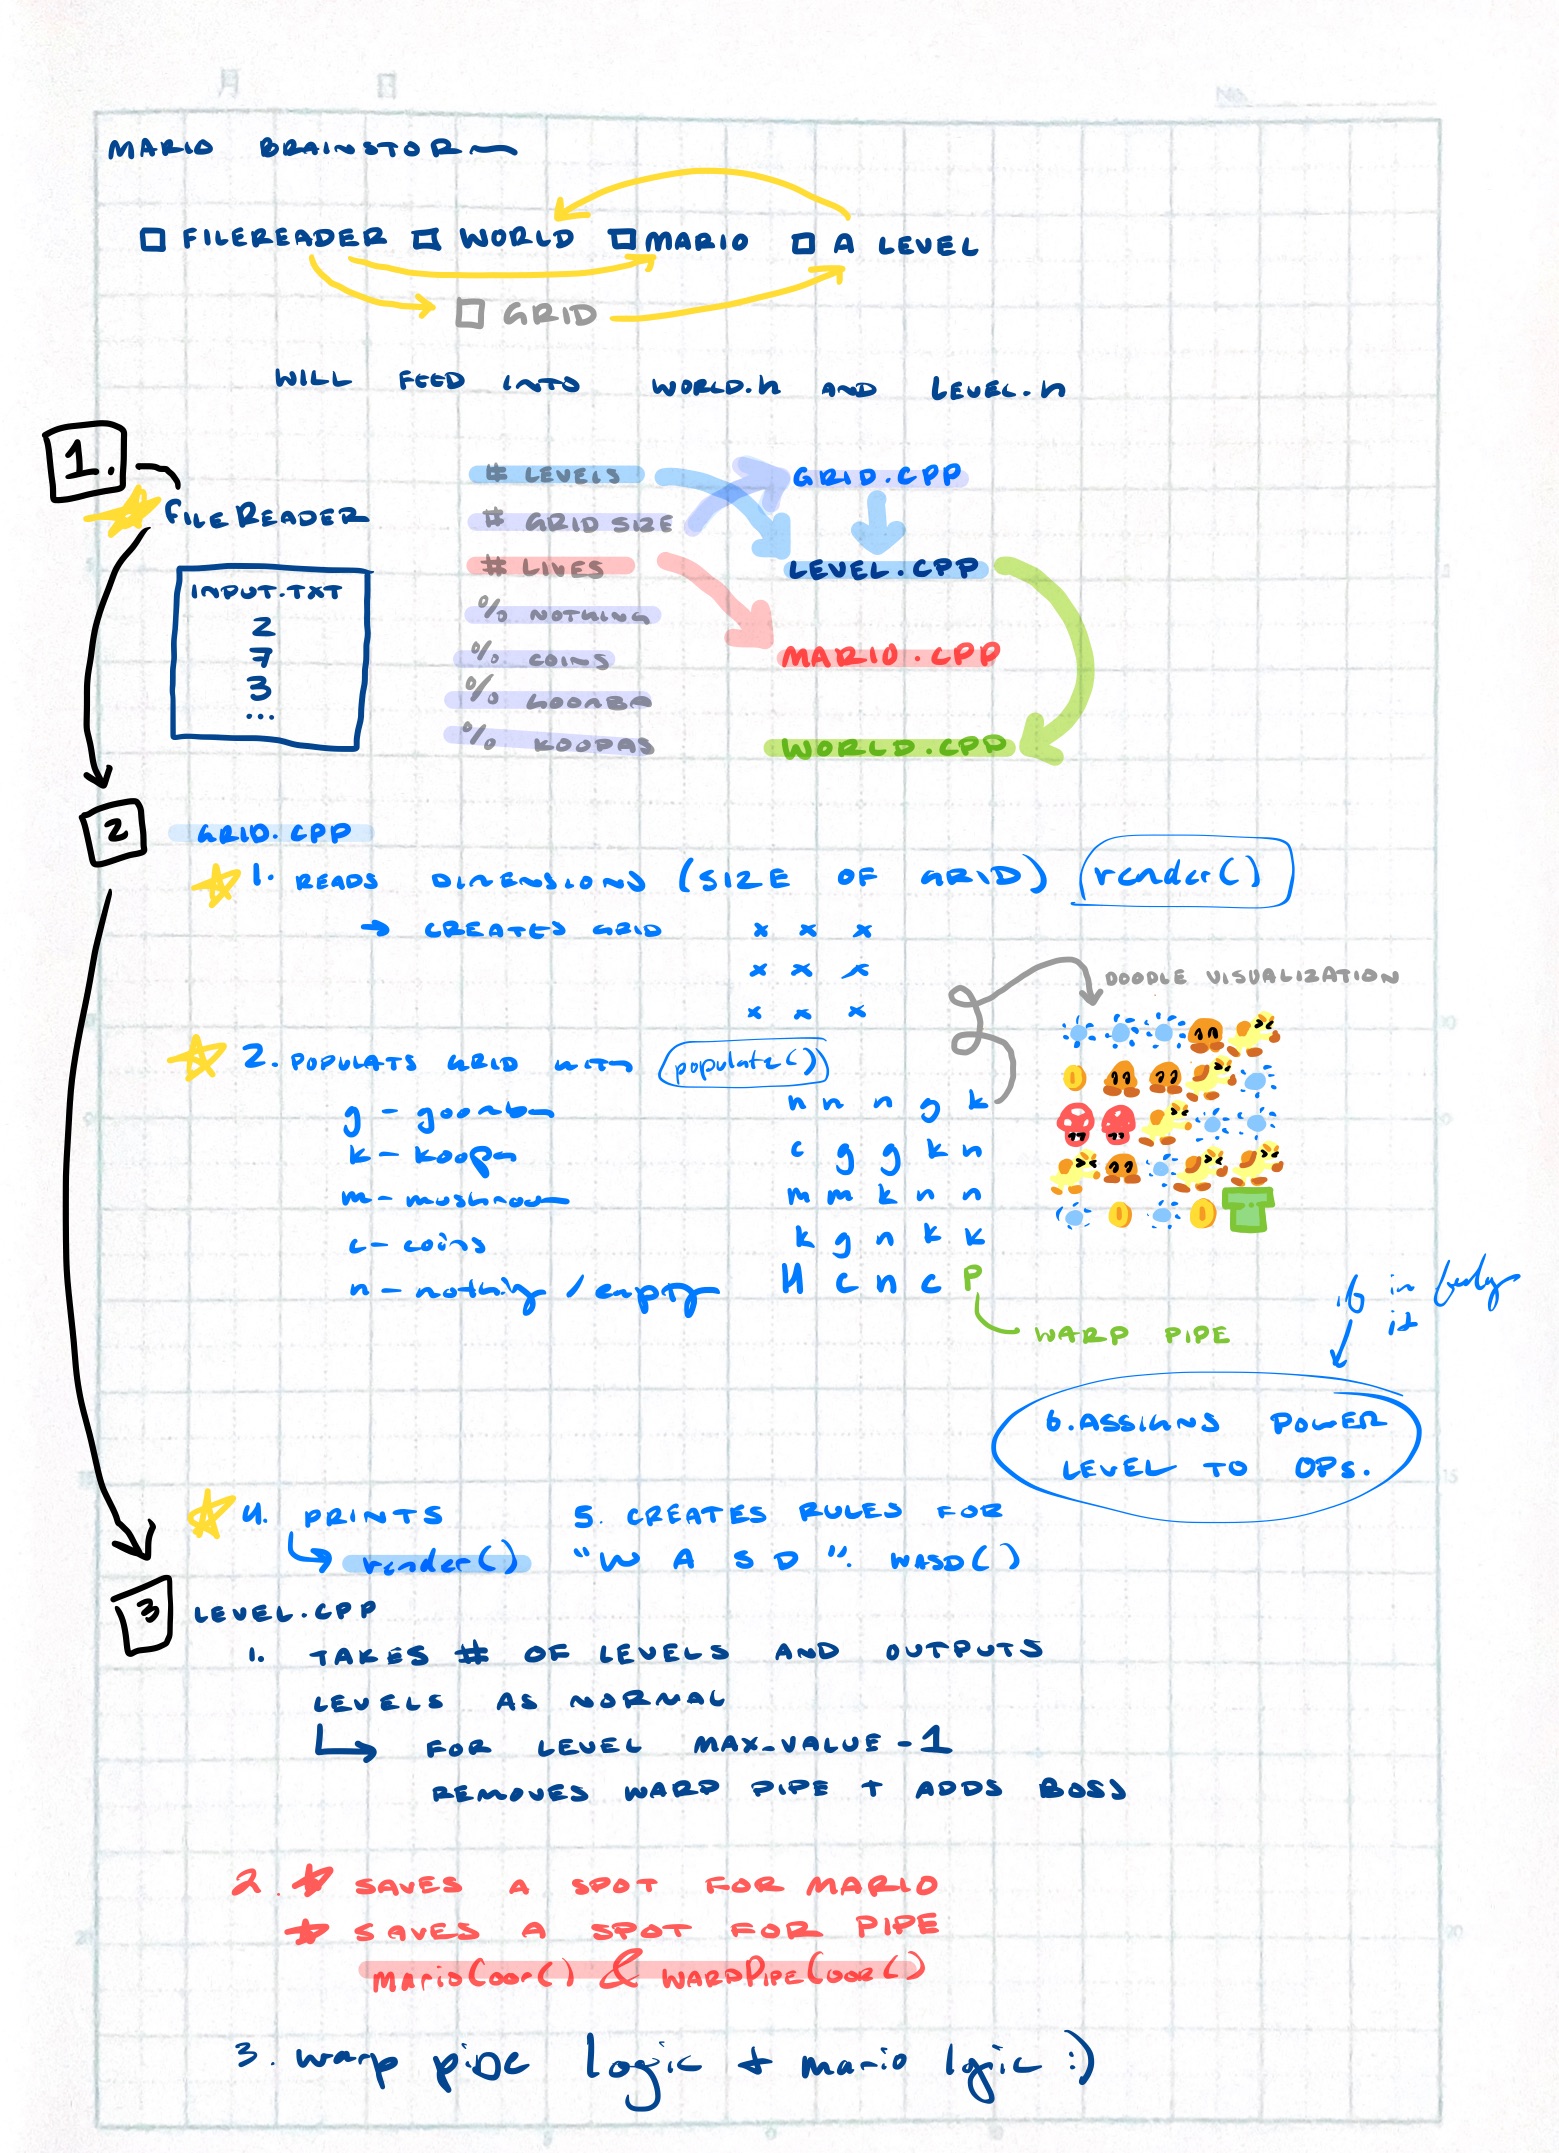 月 日 No.
MARIO BRAINSTORM
FILEREADER WORLD MARIO A LEVEL
GRID
WILL FEED INTO WORLD.h AND LEVEL.h
1.
FILEREADER
INPUT.TXT
2
7
3
...
# LEVELS
# GRID SIZE
# LIVES
% NOTHING
% COINS
% GOOMBA
% KOOPAS
GRID.CPP
LEVEL.CPP
MARIO.CPP
WORLD.CPP
2
GRID.CPP
1. READS DIMENSIONS (SIZE OF GRID) render()
→ CREATES GRID
x x x
x x x
x x x
DOODLE VISUALIZATION
2. POPULATS GRID WITH populate()
g - goomba
k - koopa
m - mushroom
c - coins
n - nothing / empty
n n n g k
c g g k n
m m k n n
k g n k k
H c n c P
WARP PIPE
it
6. ASSIGNS POWER
LEVEL TO OPS.
4. PRINTS
render()
5. CREATES RULES FOR
"W A S D". WASD()
3
LEVEL.CPP
1. TAKES # OF LEVELS AND OUTPUTS
LEVELS AS NORMAL
FOR LEVEL MAX_VALUE - 1
REMOVES WARP PIPE + ADDS BOSS
2. SAVES A SPOT FOR MARIO
SAVES A SPOT FOR PIPE
marioCoor() & WARPPIPECoor()
3. warp pipe logic + mario lgic :)